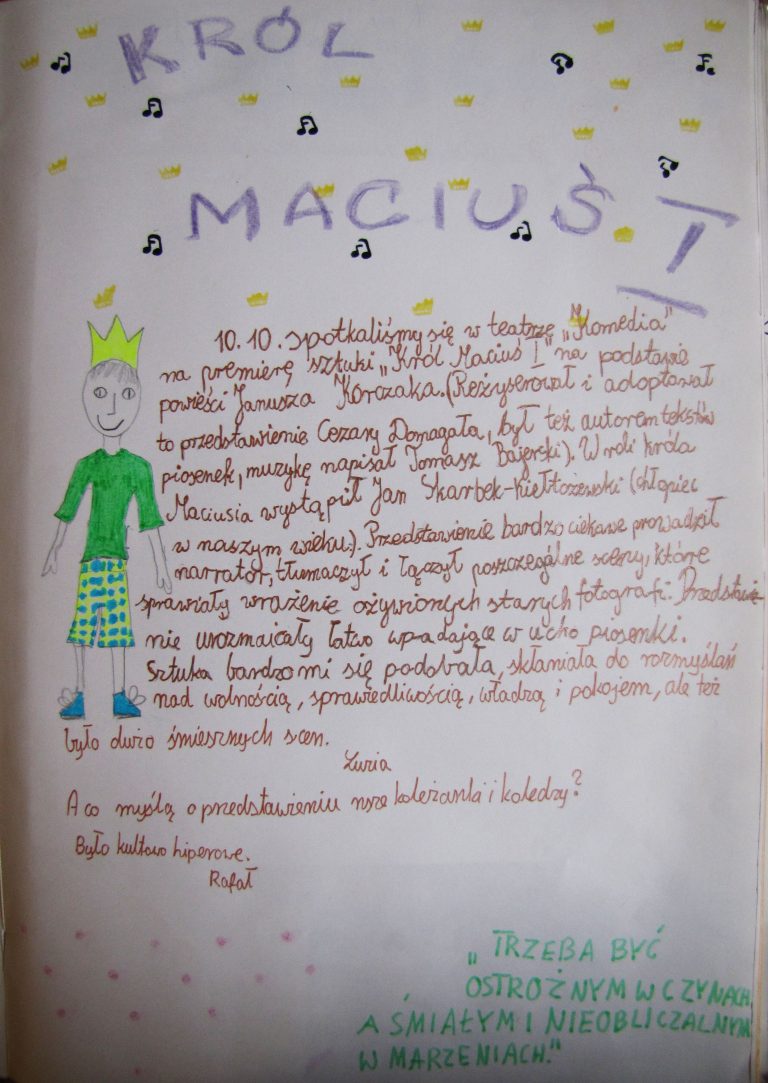 KRÓL
MACIUŚ I
10.10. spotkaliśmy się w teatrze „Komedia"
na premierę sztuki „Król Maciuś I" na podstawie
powieści Janusza Korczaka. (Reżyserował i adoptował
to przedstawienie Cezary Domagała, był też autorem tekstów
piosenek, muzykę napisał Tomasz Bajerski). W roli króla
Maciusia wystąpił Jan Skarbek-Kiełtożewski (chłopiec
w naszym wieku.). Przedstawienie bardzo ciekawe prowadził
narrator, tłumaczył i łączył poszczególne sceny, które
sprawiały wrażenie ożywionych starych fotografi. Przedstawie
nie urozmaicały łatwo wpadające w ucho piosenki.
Sztuka bardzo mi się podobała, skłaniała do rozmyślań
nad wolnością, sprawiedliwością, władzą i pokojem, ale też
było dużo śmiesznych scen.
Zuzia
A co myślą o przedstawieniu nsze koleżanki i koledzy?
Było kultowo hiperowe.
Rafał
„TRZEBA BYĆ
OSTROŻNYM W CZYNACH
A ŚMIAŁYM I NIEOBLICZALNYM
W MARZENIACH."